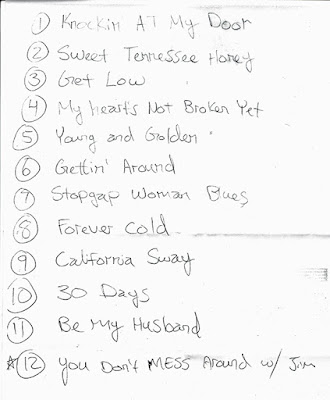 ① Knockin AT My Door
② Sweet Tennessee Honey
③ Get Low
④ My Heart's Not Broken Yet
⑤ Young and Golden
⑥ Gettin' Around
⑦ Stopgap Woman Blues
⑧ Forever Cold
⑨ California Sway
⑩ 30 Days
⑪ Be My Husband
*⑫ You Don't MESS Around w/ Jim